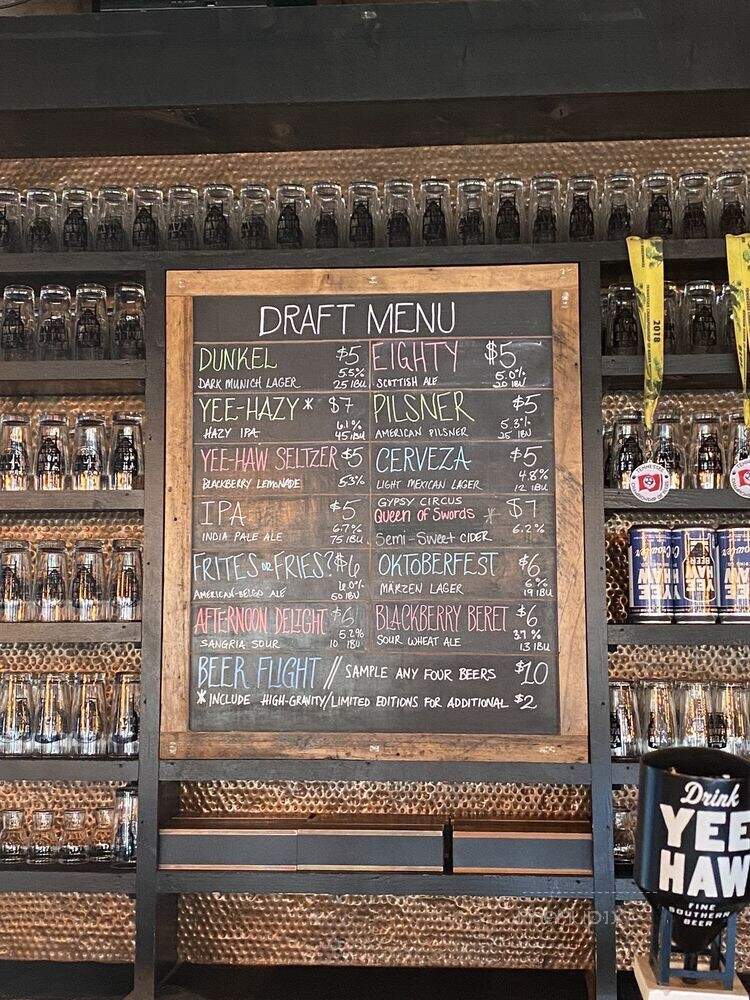 DRAFT MENU
DUNKEL $5
5.5%
DARK MUNICH LAGER 25 IBU
EIGHTY $5
5.0%
SCOTTISH ALE 20 IBU
YEE-HAZY * $7
6.1%
HAZY IPA 45 IBU
PILSNER $5
5.3%
AMERICAN PILSNER 25 IBU
YEE-HAW SELTZER $5
BLACKBERRY LEMONADE 5.3%
CERVEZA $5
4.8%
LIGHT MEXICAN LAGER 12 IBU
IPA $5
6.7%
INDIA PALE ALE 75 IBU
GYPSY CIRCUS
Queen of Swords * $7
6.2%
Semi-Sweet CIDER
FRITES OR FRIES? $6
6.0%
AMERICAN-BELGO ALE 50 IBU
OKTOBERFEST $6
6%
MARZEN LAGER 19 IBU
AFTERNOON DELIGHT $6
5.2%
SANGRIA SOUR 10 IBU
BLACKBERRY BERET $6
3.7%
SOUR WHEAT ALE 13 IBU
BEER FLIGHT // SAMPLE ANY FOUR BEERS $10
* INCLUDE HIGH-GRAVITY/LIMITED EDITIONS FOR ADDITIONAL $2
2018
TENNESSEE
Crowler
YEE
HAW
BEER
Drink
YEE
HAW
FINE
SOUTHERN
BEER